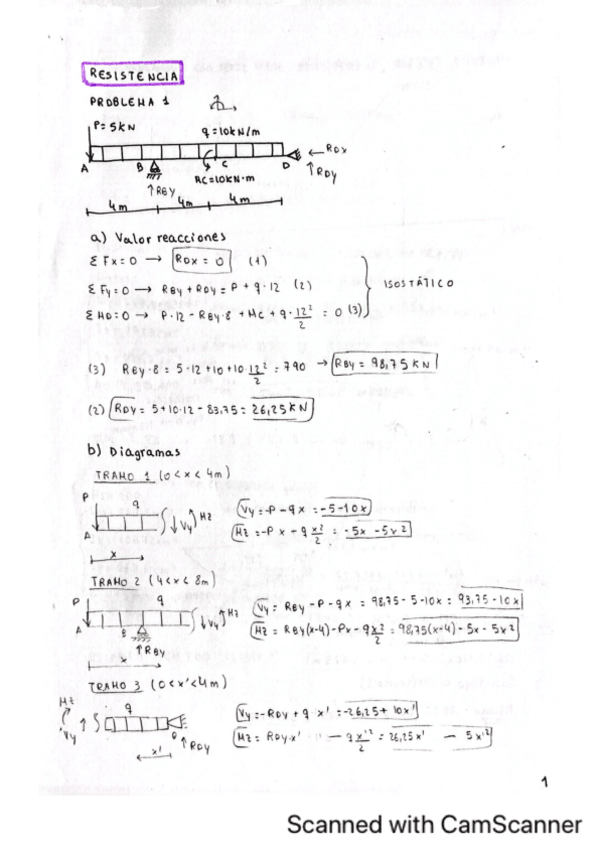 RESISTENCIA
PROBLEMA 1
P=5KN
q=10KN/m
← RDX
A
B
C
D
↑RBY
MC=10KN·m
↑RDY
4m
4m
4m
a) Valor reacciones
ΣFx=0 → RDX = 0 (1)
ΣFy=0 → RBY + RDY = P + q·12 (2)
ISOSTÁTICO
ΣMD=0 → P·12 - RBY·8 + MC + q·12²/2 = 0 (3)
(3) RBY·8 = 5·12+10+10·12²/2 = 790 → RBY = 98,75 KN
(2) RDY = 5+10·12 - 83,75 = 26,25 KN
b) Diagramas
TRAMO 1 (0<x<4m)
P
q
Vy
Mz
A
x
Vy = -P - qx = -5-10x
Mz = -Px - qx²/2 = -5x - 5x²
TRAMO 2 (4<x<8m)
P
q
Vy
Mz
A
B
↑RBY
x
Vy = RBY - P - qx = 98,75 - 5 - 10x = 93,75 - 10x
Mz = RBY(x-4) - Px - qx²/2 = 98,75(x-4) - 5x - 5x²
TRAMO 3 (0<x'<4m)
Mz
Vy
q
D
↑RDY
x'
Vy = -RDY + q x' = -26,25 + 10x'
Mz = RDY·x' - qx'²/2 = 26,25x' - 5x'²
1
Scanned with CamScanner